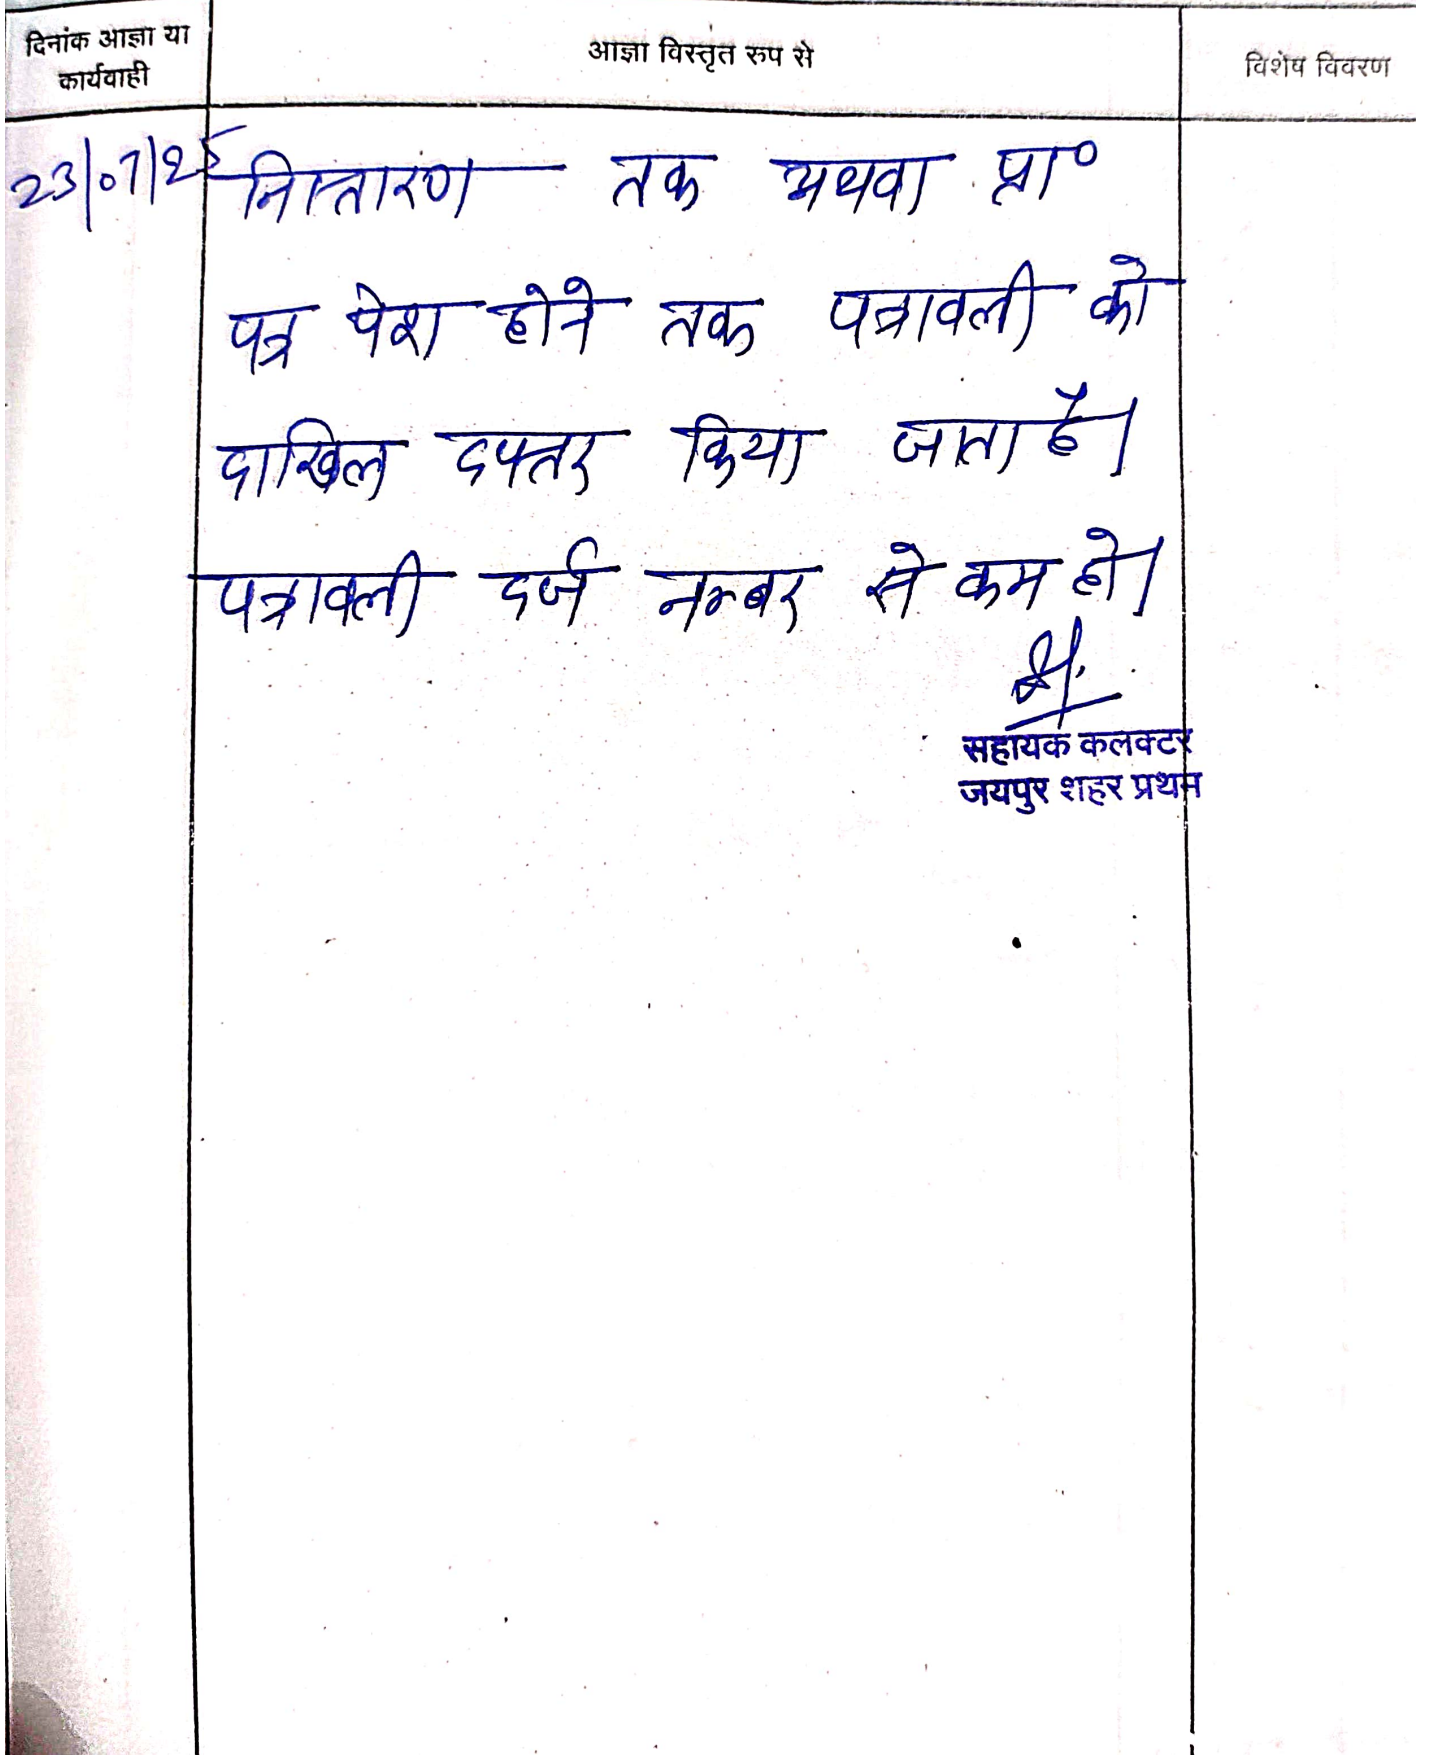 दिनांक आज्ञा या
कार्यवाही
आज्ञा विस्तृत रुप से
विशेष विवरण
23/07/25 निस्तारण तक अथवा प्रा०
पत्र पेश होने तक पत्रावली को
दाखिल दफ्तर किया जाता है।
पत्रावली दर्ज नम्बर से कम हो।
सहायक कलक्टर
जयपुर शहर प्रथम